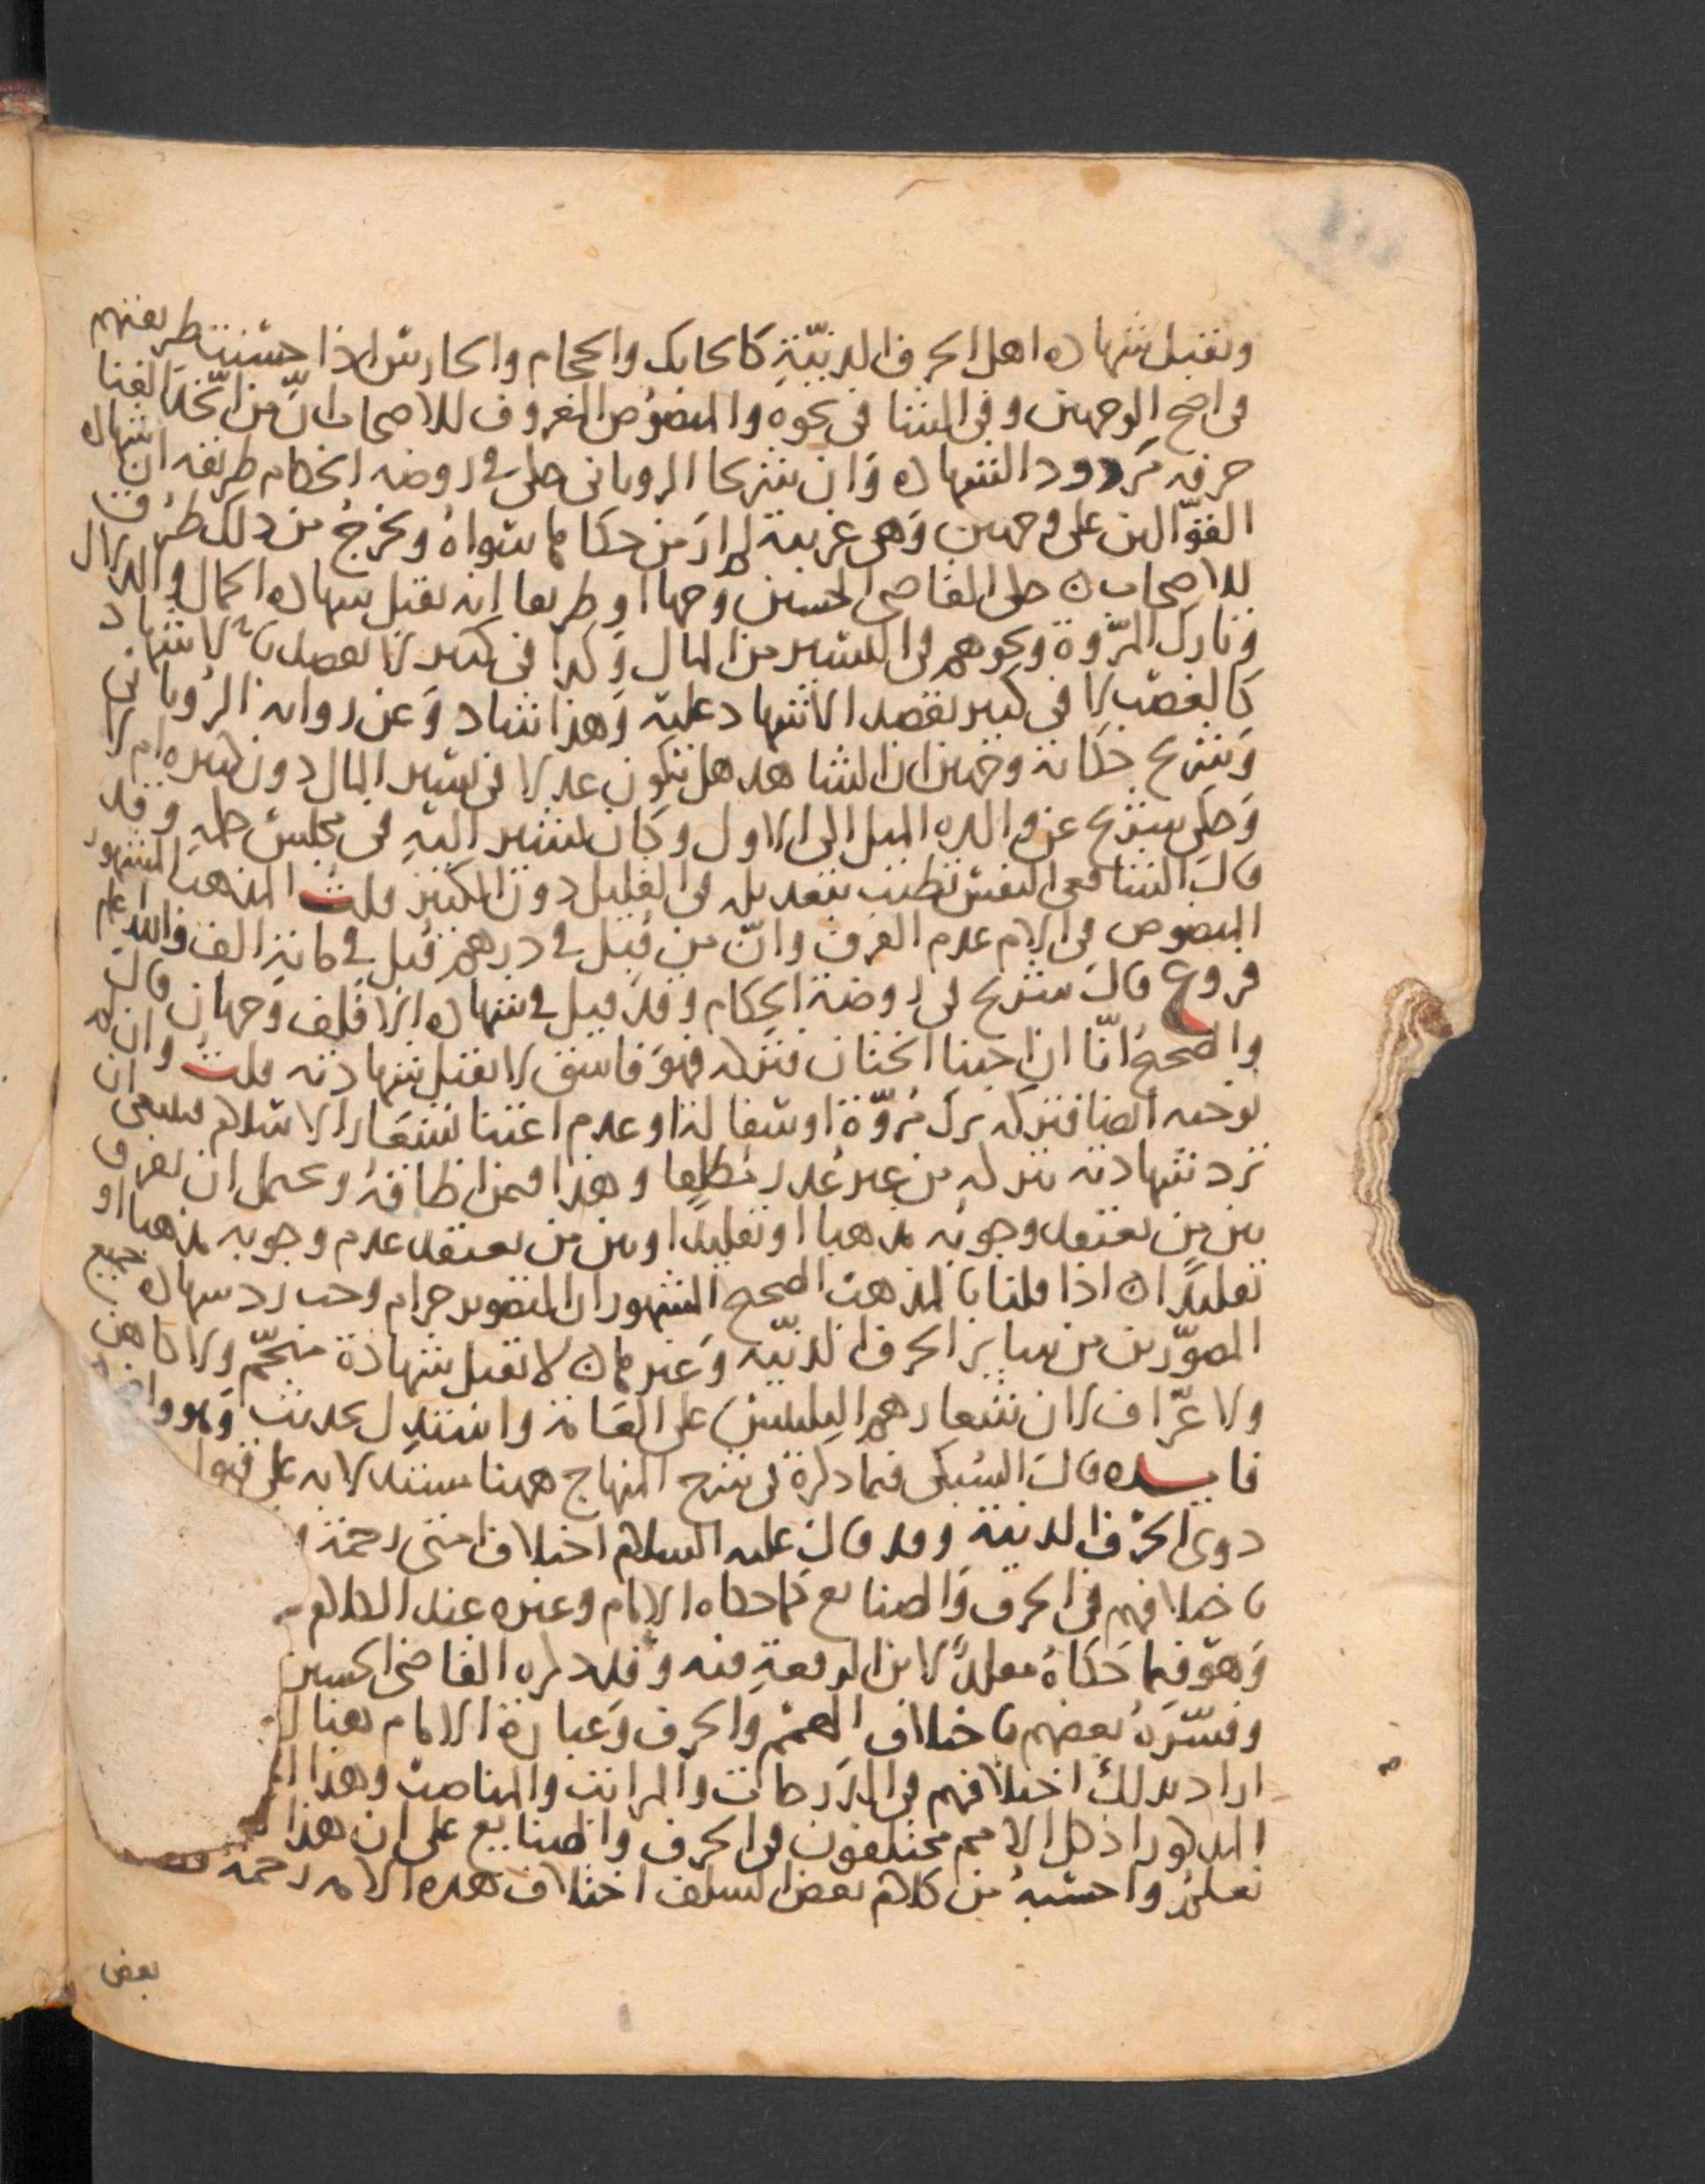 وتقبل شهاده اهل الحرف الدنيّة كالحايك والحجام والحارس اذا حسنت طريقتهم
فى اصح الوجهين وفى الشنا فى نحوه والمنصوص المعروف للاصحاب انّ من اتّخذ الغنا
حرفه مردود الشهاده وان شريحا الرويانى حكى فى روضه الحكام طريقه ان شهاده
القوّالين على وجهين وهى غريبة لم ار من حكاها سواهُ ويخرج من ذلك طرق
للاصحاب ه حكى القاضى الحسين وجها او طريقا انه تقبل شهاده الحمال والدلال
وتارك المرّوة ونحوهم فى اليسير من المال وكذا فى كثير لا يقصد بالاشهاد
كالغصب لا فى كثير يقصد الاشهاد عليه وهذا شاد وعن روايه الرويانى
وشريح حكاية وجهين ان الشاهد هل يكون عدلا فى يسير المال دون كثيره ام لا
وحكى شريح عن والده الميل الى الاول وكان يشير اليهِ فى مجلس حكمهِ وقد
قال الشافعى النفس تطيب بتعديله فى القليل دون الكثير قلت المذهب المشهور
المنصوص فى الام عدم الفرق وانّ من قُبل فى درهم قُبل فى مائةِ الف والله اعلم
فروع قال شريح فى روضة الحكام وقد قيل فى شهاده الاقلف وجهان قال
والصحيح انّا ان اوجبنا الختان فتركه فهو فاسق لا تقبل شهادته قلت وان لم
نوجبه ايضا فتركه ترك مُروّة او سفالة او عدم اعتنا بشعار الاسلام فينبغى ان
ترد شهادته بتركهِ من غير عُذر مُطلقا وهذا فيمن اطاقهُ ويحتمل ان يفرق
بين من يعتقد وجوبه مذهبا او تقليدًا وبين من يعتقد عدم وجوبه مذهبا او
تقليدًا ه اذا قلنا بالمذهب الصحيح المشهور ان التصوير حرام وجب رد شهاده جميع
المصوّرين من ساير الحرف الدنيّة وغيرها ه لا تقبل شهادة منجّم ولا كاهن
ولا عرّاف لان شعارهم التلبيس على العامة واستدل بحديث وهو واضح
فايده قال السُبكى فيما ذكرهُ فى شرح المنهاج ههنا مستدلا به على قبول
ذوى الحُرف الدنية وقد قال عليه السلام اختلاف امتى رحمة و
باختلافهم فى الحرف والصنايع كما حكاه الامام وغيره عند الكلام
وهو فيما حكاهُ مقلدًا لابن الرفعةِ فيه وقد ذكره القاضى الحسين
وفسّرهُ بعضهم باختلاف الهمم والحرف وعبارة الامام يعنا
اراد بذلك اختلافهم فى الدرجات والمراتب والمناصب وهذا
المذكور اذ كل الامم مختلفون فى الحرف والصنايع على ان هذا
نعلمُ واحسبهُ من كلام بعض السلف اختلاف هذه الامه رحمة
بعض